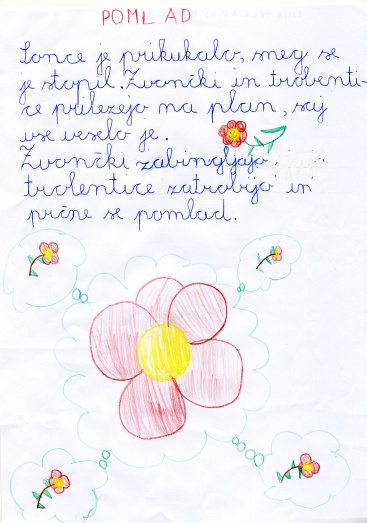 POMLAD
Sonce je prikukalo, sneg se
je stopil. Zvončki in trobenti-
ce prilezejo na plan, saj
vse veselo je.
Zvončki zabingljajo
trobentice zatrobijo in
prične se pomlad.